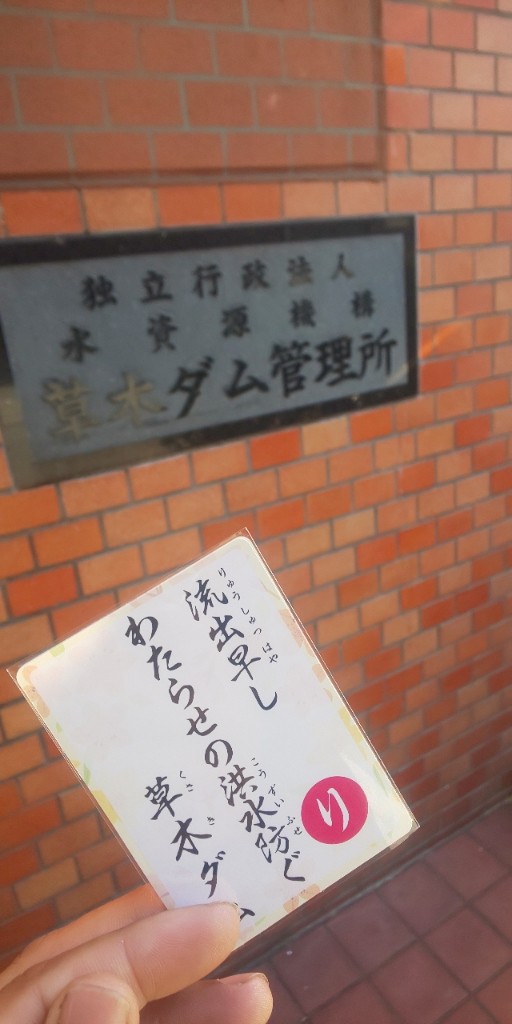 独立行政法人
水資源機構
草木ダム管理所
りゅうしゅつ はや
流出早し
わたらせの洪水防ぐ
こうずい ふせ
草木ダム
くさ き
り